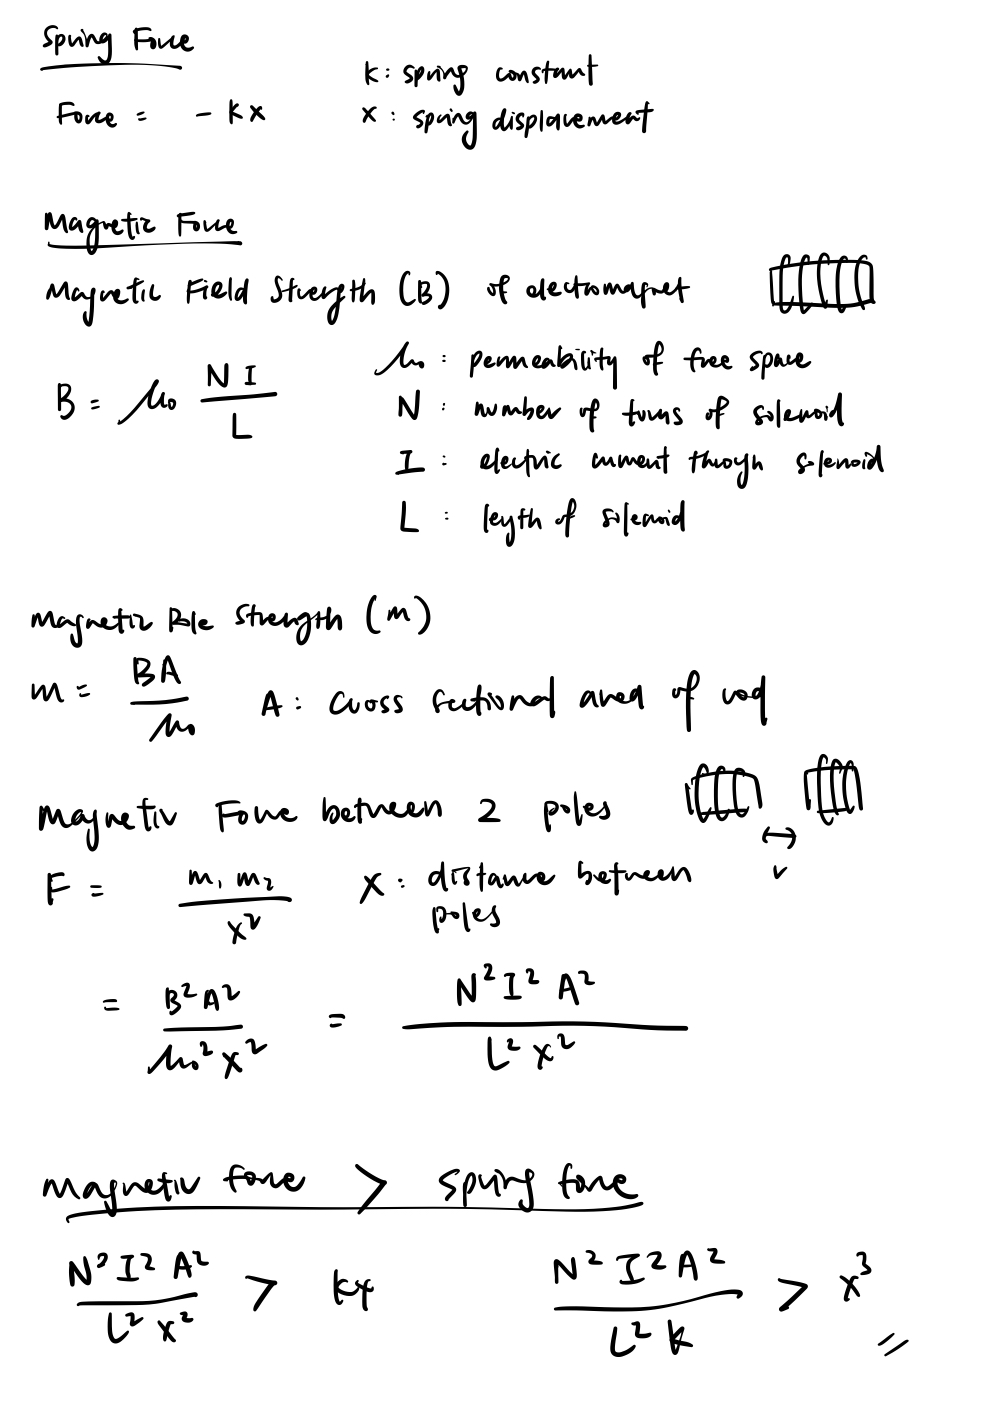 Spring Force
Force = - kx
k: spring constant
x: spring displacement
Magnetic Force
Magnetic Field Strength (B) of electromagnet
B = μ₀ NI / L
μ₀: permeability of free space
N: number of turns of solenoid
I: electric current through solenoid
L: length of solenoid
Magnetic Pole Strength (m)
m = BA / μ₀
A: cross sectional area of rod
Magnetic Force between 2 poles
r
F = m₁ m₂ / x²
x: distance between
poles
= B²A² / μ₀² x² = N² I² A² / L² x²
magnetic force > spring force
N² I² A² / L² x² > kx
N² I² A² / L² k > x³